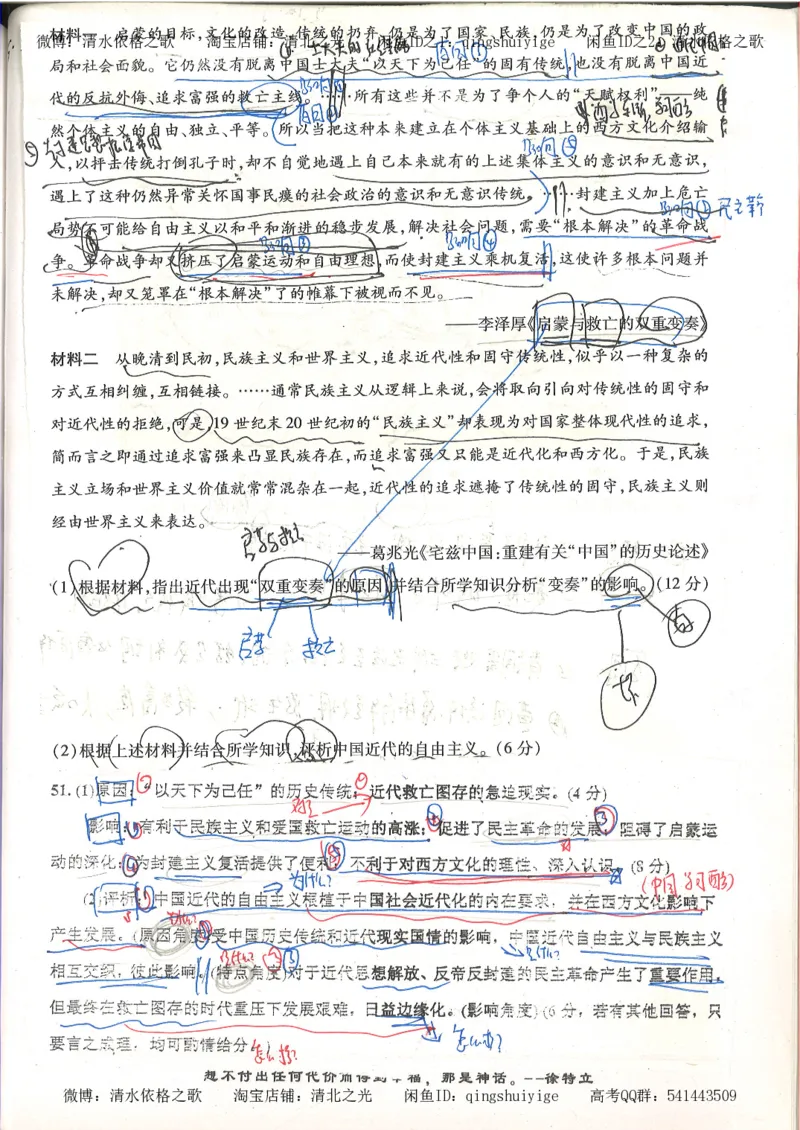 材料一 启蒙的目标,文化的改造,传统的扔弃,仍是为了国家、民族,仍是为了改变中国的政
微博：清水依格之歌 淘宝店铺：清北 闲鱼ID之 qingshuiyige 闲鱼ID之2 格之歌
局和社会面貌。它仍然没有脱离中国士大夫“以天下为己任”的固有传统,也没有脱离中国近
代的反抗外侮、追求富强的救亡主线。……所有这些并不是为了争个人的“天赋权利”——纯
然个体主义的自由、独立、平等。所以当把这种本来建立在个体主义基础上的西方文化介绍输
入,以抨击传统打倒孔子时,却不自觉地遇上自己本来就有的上述集体主义的意识和无意识,
遇上了这种仍然异常关怀国事民瘼的社会政治的意识和无意识传统。……封建主义加上危亡
民主革命
局势不可能给自由主义以和平和渐进的稳步发展,解决社会问题,需要“根本解决”的革命战
争。革命战争却又挤压了启蒙运动和自由理想,而使封建主义乘机复活,这使许多根本问题并
未解决,却又笼罩在“根本解决”了的帷幕下被视而不见。
——李泽厚《启蒙与救亡的双重变奏》
材料二 从晚清到民初,民族主义和世界主义,追求近代性和固守传统性,似乎以一种复杂的
方式互相纠缠,互相链接。……通常民族主义从逻辑上来说,会将取向引向对传统性的固守和
对近代性的拒绝,可是,19世纪末20世纪初的“民族主义”却表现为对国家整体现代性的追求,
简而言之即通过追求富强来凸显民族存在,而追求富强又只能是近代化和西方化。于是,民族
主义立场和世界主义价值就常常混杂在一起,近代性的追求遮掩了传统性的固守,民族主义则
经由世界主义来表达。
启蒙与救亡
——葛兆光《宅兹中国:重建有关“中国”的历史论述》
(1)根据材料,指出近代出现“双重变奏”的原因,并结合所学知识分析“变奏”的影响。(12分)
好
启蒙 救亡
坏
(2)根据上述材料并结合所学知识,评析中国近代的自由主义。(6分)
51.(1)原因:“以天下为己任”的历史传统;近代救亡图存的急迫现实。(4分)
影响:有利于民族主义和爱国救亡运动的高涨;促进了民主革命的发展;阻碍了启蒙运
动的深化;为封建主义复活提供了便利;不利于对西方文化的理性、深入认识。(8分)
为什么?
(2)评析:中国近代的自由主义根植于中国社会近代化的内在要求,并在西方文化影响下
产生发展。(原因角度)受中国历史传统和近代现实国情的影响,中国近代自由主义与民族主义
相互交织,彼此影响。(特点角度)对于近代思想解放、反帝反封建的民主革命产生了重要作用,
但最终在救亡图存的时代重压下发展艰难,日益边缘化。(影响角度)(6分,若有其他回答,只
要言之成理,均可酌情给分)
想不付出任何代价而得到幸福，那是神话。--徐特立
微博：清水依格之歌 淘宝店铺：清北之光 闲鱼ID：qingshuiyige 高考QQ群：541443509